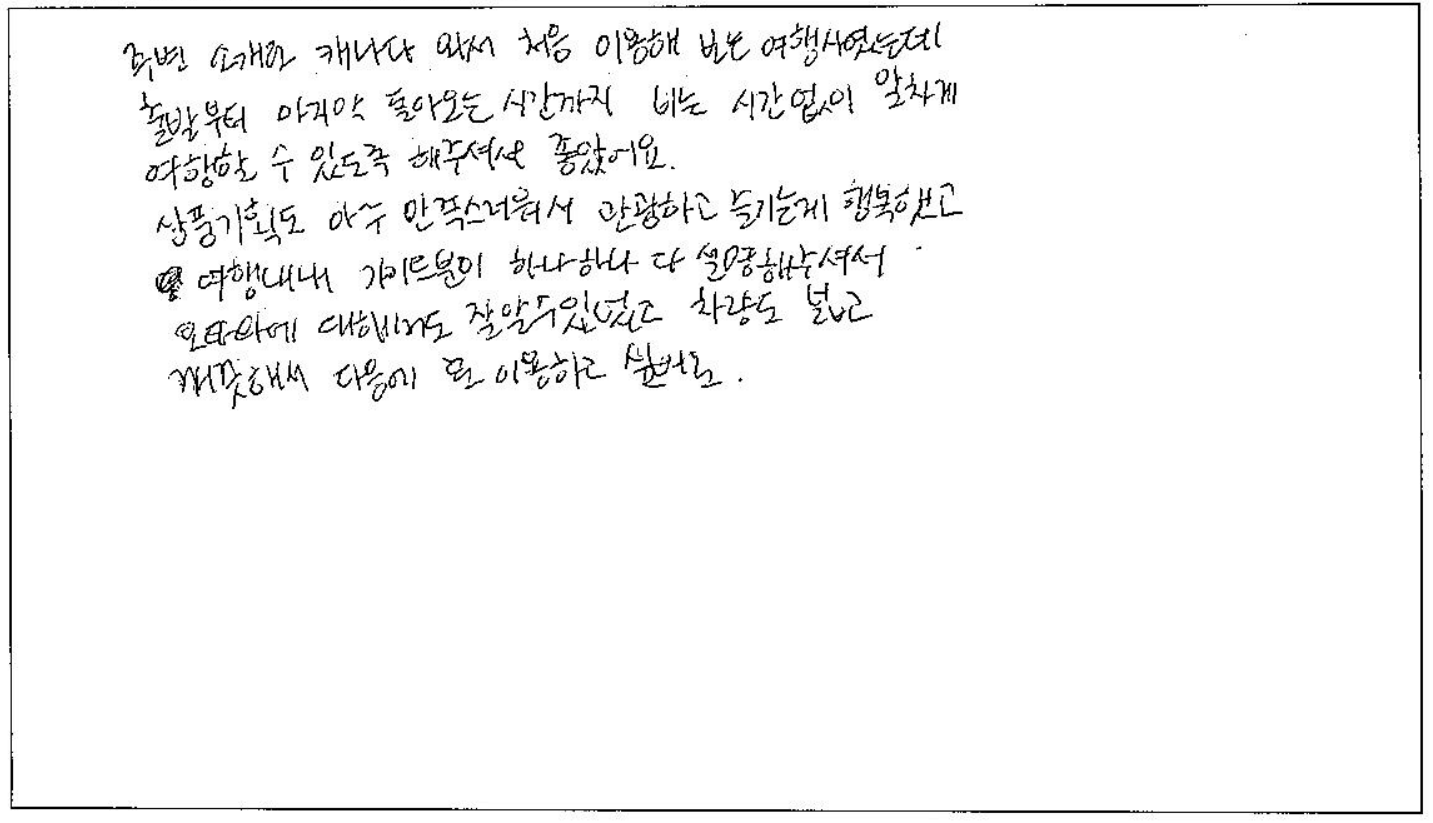 주변 소개로 캐나다 와서 처음 이용해 보는 여행사였는데
출발부터 마지막 돌아오는 시간까지 비는 시간없이 알차게
여행할 수 있도록 해주셔서 좋았어요.
상품기획도 아주 만족스러워서 관광하고 즐기는게 행복했고
여행내내 가이드분이 하나하나 다 설명해주셔서
오타와에 대해서도 잘알수있었고 차량도 넓고
깨끗해서 다음에 또 이용하고 싶어요.